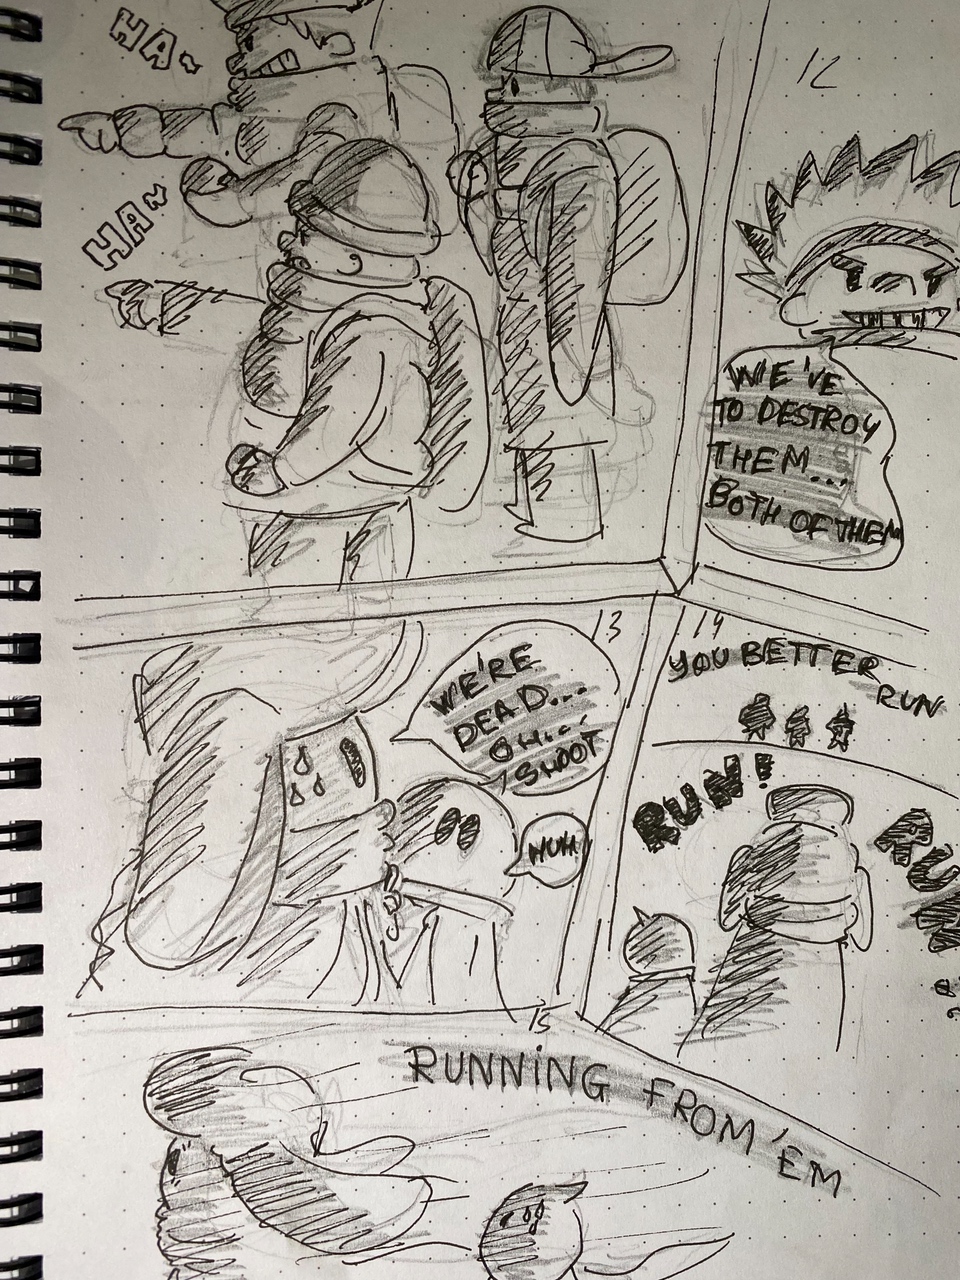 HA~
HA~
12
WE'VE
TO DESTROY
THEM...
BOTH OF THEM
13
WE'RE
DEAD...
OH...
SHOOT
HUH
14
YOU BETTER
RUN
RUN!
RUN
15
RUNNING FROM 'EM